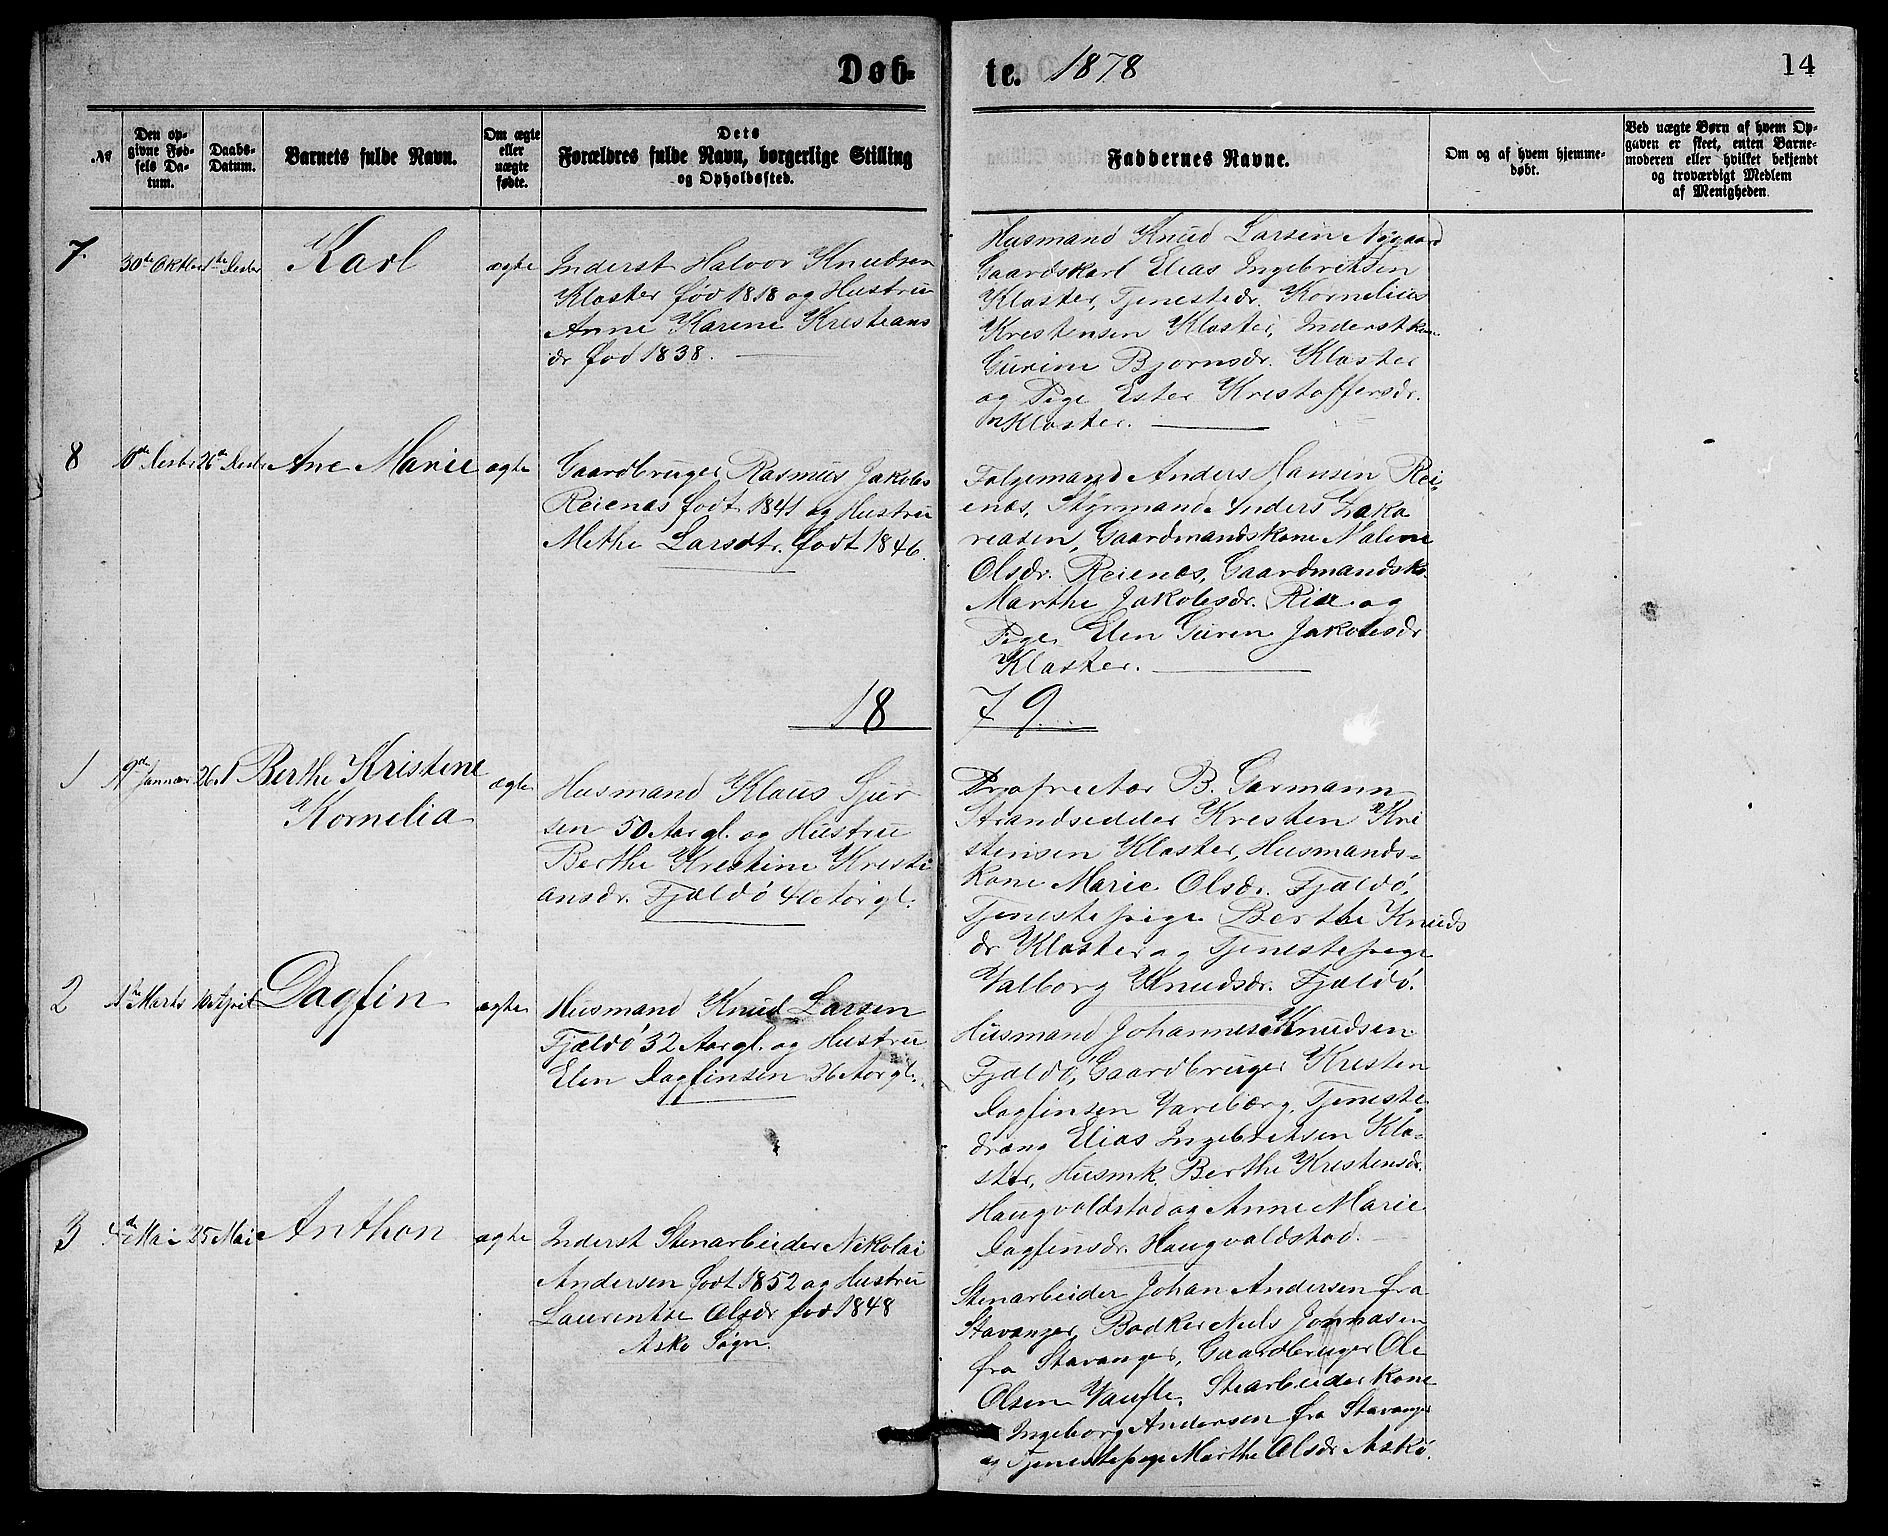 Døb-
te. 1878
14
№
Den op-
givne Fød-
sels Da-
tum.
Daabs-
Datum.
Barnets fulde Navn.
Om ægte
eller
uægte
fødte.
Dets
Forældres fulde Navn, borgerlige Stilling
og Opholdssted.
Faddernes Navne.
Om og af hvem hjemme-
døbt.
Ved uægte Børn af hvem Op-
gaven er skeet, enten Barne-
moderen eller hvilket bekjendt
og troværdigt Medlem
af Menigheden.
7.
30te Oktbr
1ste Decbr
Karl
ægte
Inderst Halvor Knudsen
Kloster fød 1818 og Hustru
Anne Karine Kristians
dr fød 1838.
Husmand Knud Larsen Nygaard
Gaardskarl Elias Ingebritsen
Kloster, Tjenestedr. Kornelius
Kristensen Kloster, Inderstkone
Gurine Bjornsdr. Kloster
og Pige Ester Kristoffersdr.
Kloster.
8
10de Decbr
26de Decbr
Ane Marie
ægte
Gaardbruger Rasmus Jakobs
Reienæs født 1841 og Hustru
Methe Larsdtr. født 1846.
Følgemand Anders Hansen Rei-
enæs, Styrmand Anders Zaka
reasen, Gaardmandskone Malene
Olsdr. Reienæs, Gaardmandsk.
Marthe Jakobsdr. og
Pige Elen Guren Jakobsdr
Kloster.
18
79
1
Januar
26
Berthe Kristine
Kornelia
ægte
Husmand Klaus Sjur
sen 50 Aar gl. og Hustru
Berthe Kristine Kristi
ansdr. Fjældö 40 Aar gl.
Proprietør B. Garmann
Strandsidder Kristen Kri
stensen Kloster, Husmands-
kone Marie Olsdr. Fjældö,
Tjenestepige Berthe Knuds
dr Kloster og Tjenestepige
Valborg Knudsdr. Fjældö.
2
Marts
April
Dagfin
ægte
Husmand Knud Larsen
Fjældö 32 Aar gl. og Hustru
Elen Dagfinsen 26 Aar gl.
Husmand Johannes Knudsen
Fjældö, Gaardbruger Kristen
Dagfinsen Vareberg, Tjeneste
dreng Elias Ingebritsen Klo-
ster, Husmk. Berthe Kristensdr.
Haugvaldstad og Anne Marie
Dagfinsdr. Haugvaldstad.
3
4de Mai
25 Mai
Anthon
ægte
Inderst Stenarbeider Nikolai
Andersen født 1852 og Hustru
Laurentse Olsdr fød 1848
Askö Sogn.
Stenarbeider Johan Andersen fra
Stavanger, Bødker Nils Jonnasen
fra Stavanger, Gaardbruger Ole
Olsen, Stearbeiderkone
Ingeborg Andersen fra Stavanger
og Tjenestepige Marthe Olsdr Askö.